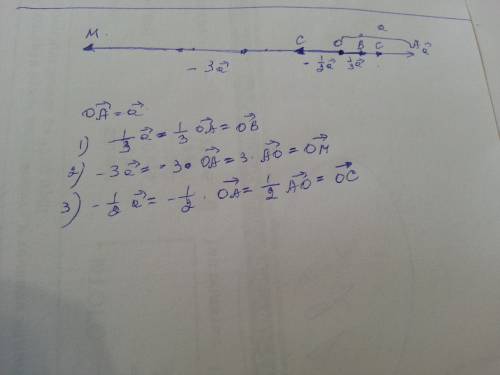 a
M. C O B C A
- 3a⃗ - 1/2 a⃗ 1/3 a⃗ a⃗
OA⃗ = a⃗
1) 1/3 a⃗ = 1/3 OA⃗ = OB⃗
2) - 3a⃗ = - 3 · OA⃗ = 3 · AO⃗ = OM⃗
3) - 1/2 a⃗ = - 1/2 · OA⃗ = 1/2 AO⃗ = OC⃗